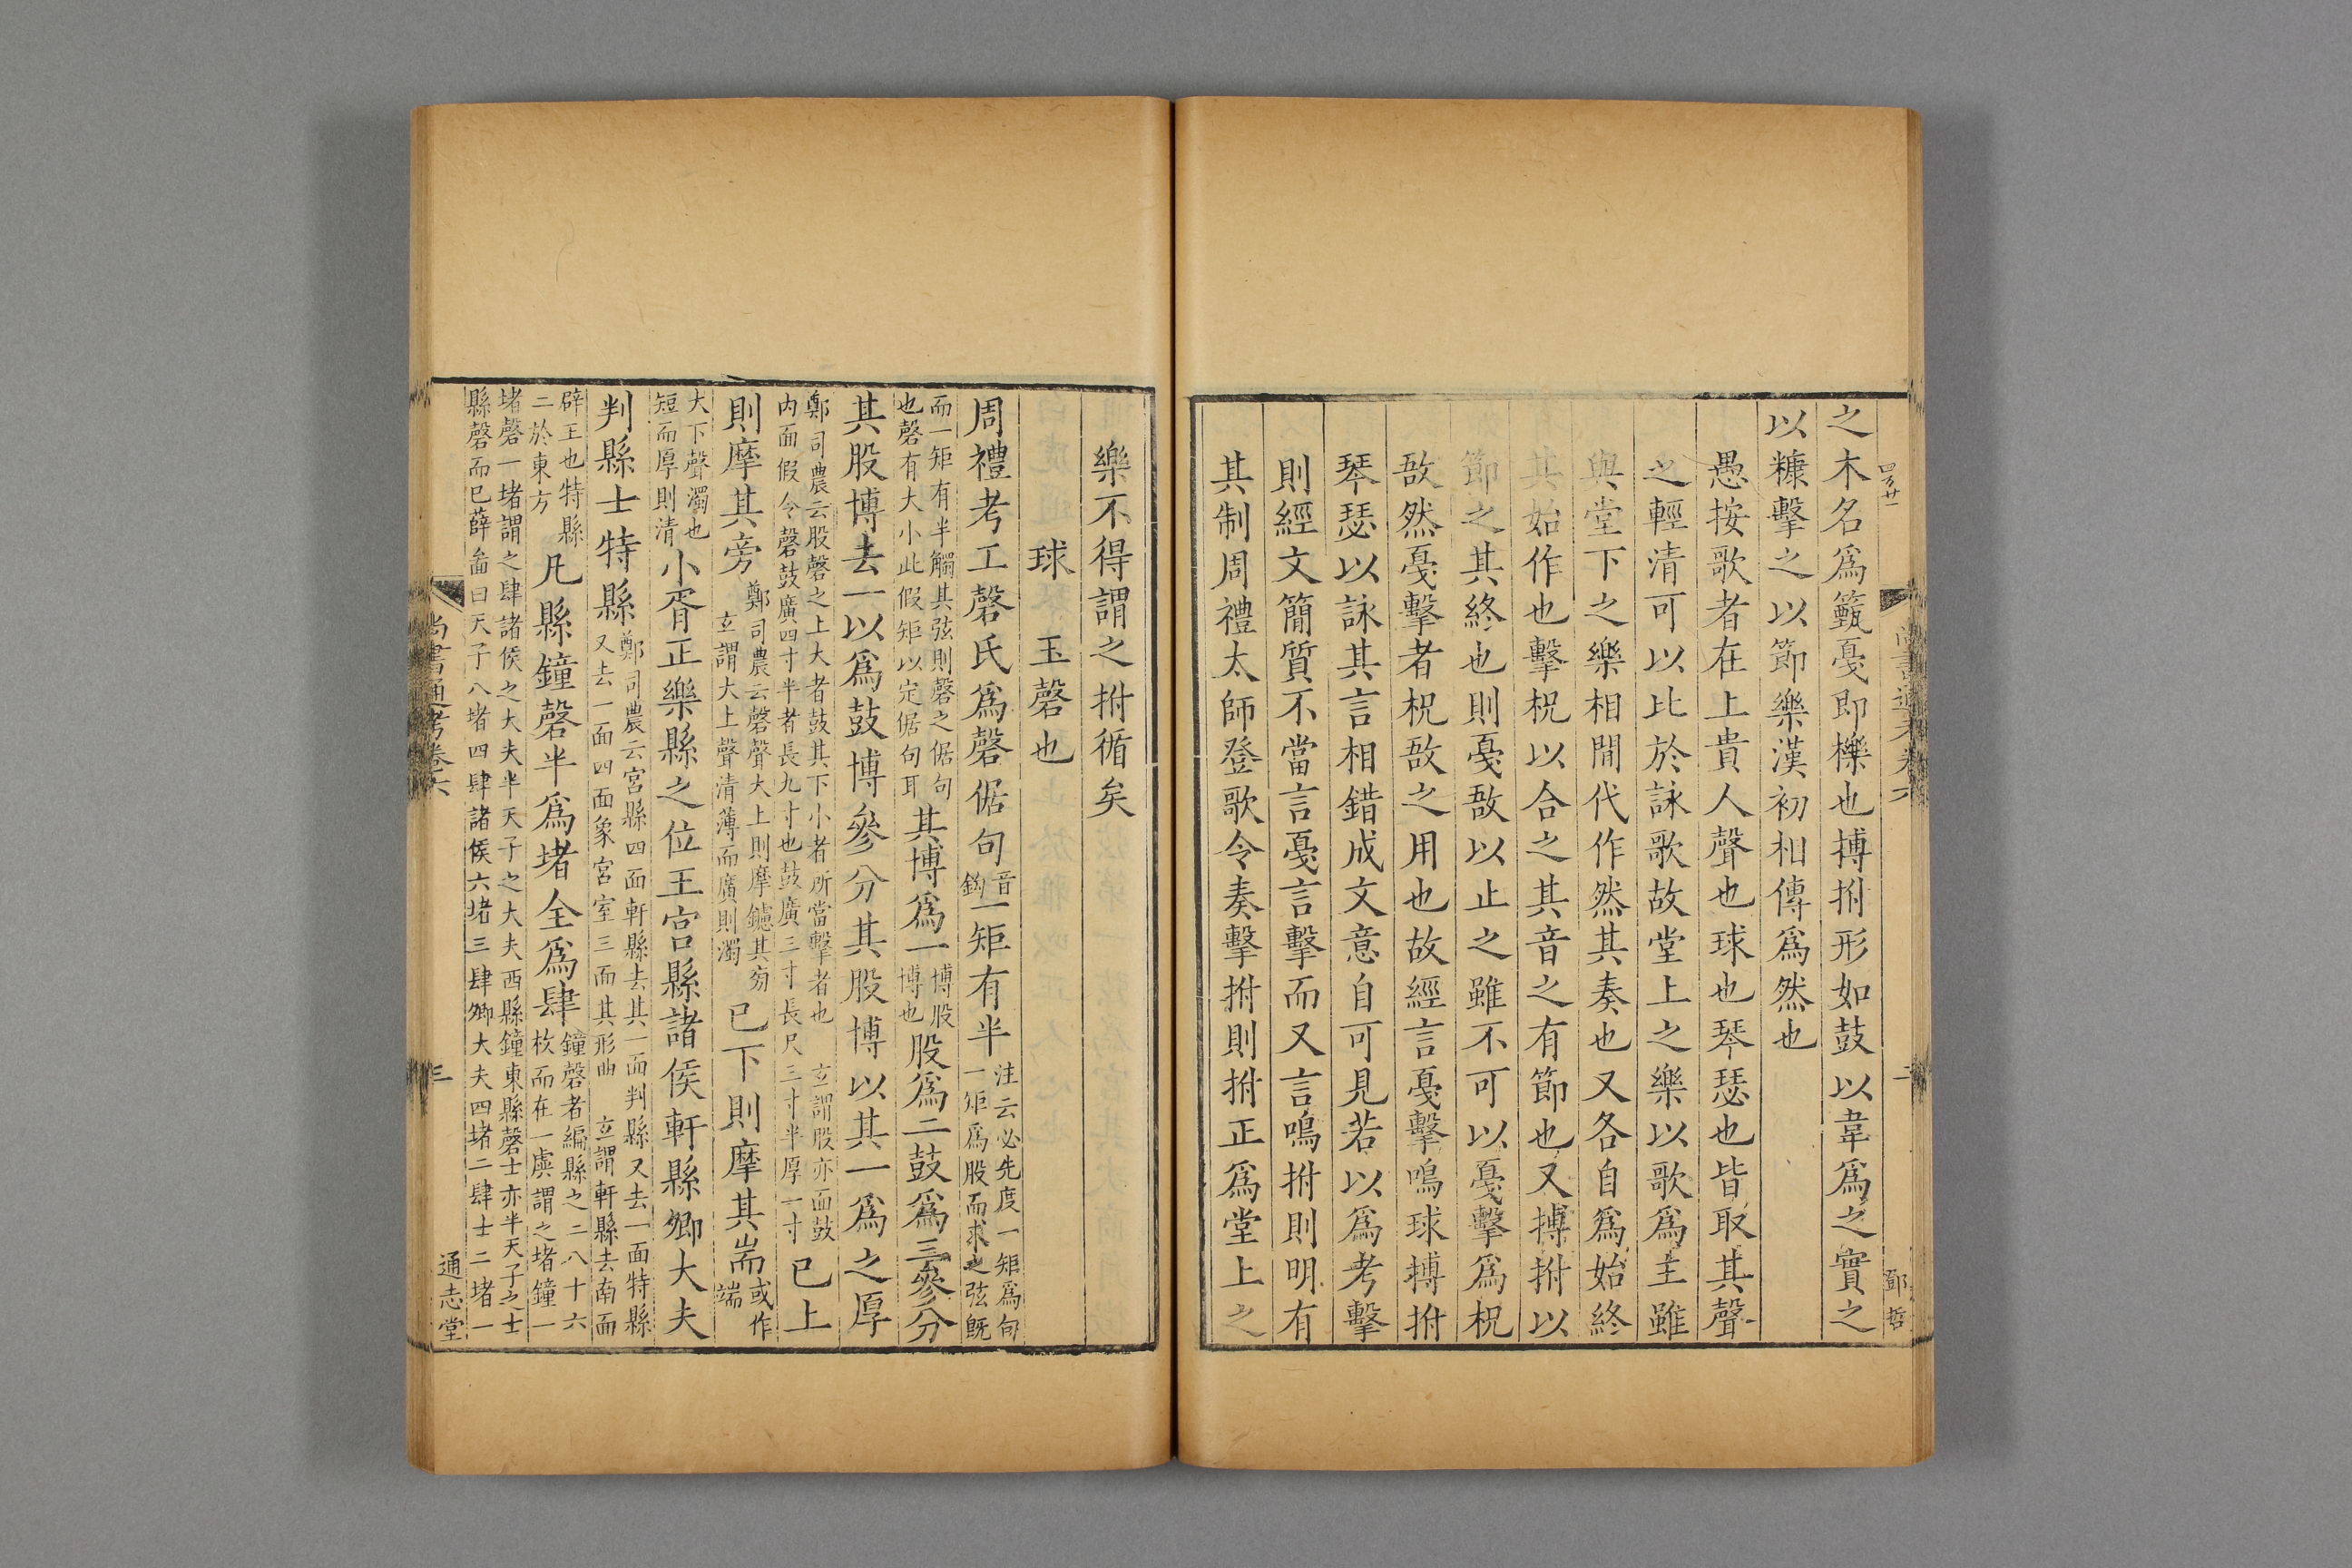 之木名爲籈戛即櫟也搏拊形如鼓以韋爲之實之
以糠擊之以節樂漢初相傳爲然也
愚按歌者在上貴人聲也球也琴瑟也皆取其聲
之輕清可以比於詠歌故堂上之樂以歌爲主雖
與堂下之樂相間代作然其奏也又各自爲始終
其始作也擊柷以合之其音之有節也又搏拊以
節之其終也則戛敔以止之雖不可以戛擊爲柷
敔然戛擊者柷敔之用也故經言戛擊鳴球搏拊
琴瑟以詠其言相錯成文意自可見若以爲考擊
則經文簡質不當言戛言擊而又言鳴拊則明有
其制周禮太師登歌令奏擊拊則拊正爲堂上之
鄧哲
樂不得謂之拊循矣
球 玉磬也
周禮考工磬氏爲磬倨句音鉤一矩有半注云必先度一矩爲句一矩爲股而求之弦旣
而一矩有半觸其弦則磬之倨句也磬有大小此假矩以定倨句耳其博爲一博股博也股爲二鼓爲三參分
其股博去一以爲鼓博參分其股博以其一爲之厚
鄭司農云股磬之上大者鼓其下小者所當擊者也 玄謂股亦面鼓內面假令磬鼓廣四寸半者長九寸也鼓廣三寸長尺三寸半厚一寸已上
則摩其旁鄭司農云磬聲大上則摩鑢其旁 玄謂大上聲清薄而廣則濁已下則摩其耑或作端
大下聲濁也短而厚則清小胥正樂縣之位王宮縣諸侯軒縣卿大夫
判縣士特縣鄭司農云宮縣四面軒縣去其一面判縣又去一面特縣又去一面四面象宮室三面其形曲 玄謂軒縣去南面
辟王也特縣二於東方凡縣鐘磬半爲堵全爲肆鐘磬者編縣之二八十六枚而在一虡謂之堵鐘一
堵磬一堵謂之肆諸侯之大夫半天子之大夫西縣鐘東縣磬士亦半天子之士縣磬而已薛啚曰天子八堵四肆諸侯六堵三肆卿大夫四堵二肆士二堵一
尚書通考卷六 三 通志堂